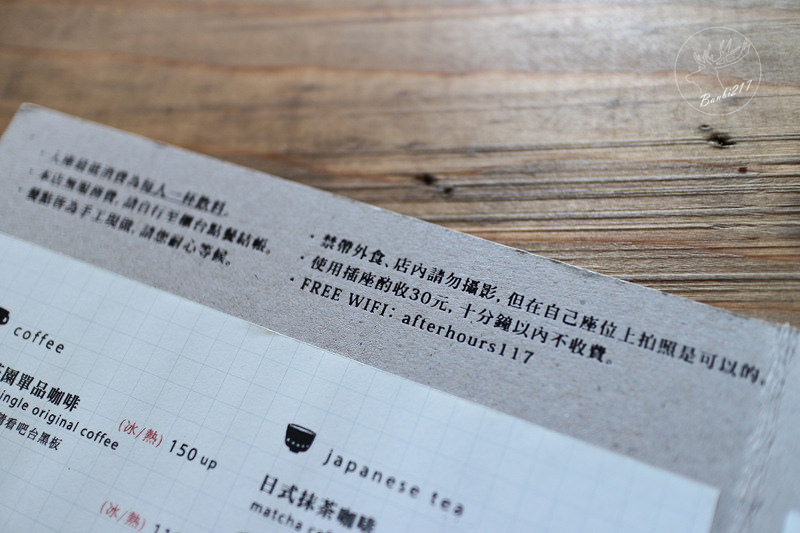 ・入座最低消費為每人一杯飲料。
・本店無服務費,請自行至櫃台點餐結帳。
餐點皆為手工現做,請您耐心等候。
・禁帶外食、店內請勿攝影,但在自己座位上拍照是可以的。
・使用插座酌收30元,十分鐘以內不收費。
・FREE WIFI: afterhours117
coffee
園單品咖啡
ingle original coffee
請看吧台黑板
(冰/熱) 150 up
(冰/熱)
japanese tea
日式抹茶咖啡
matcha
Banbi217